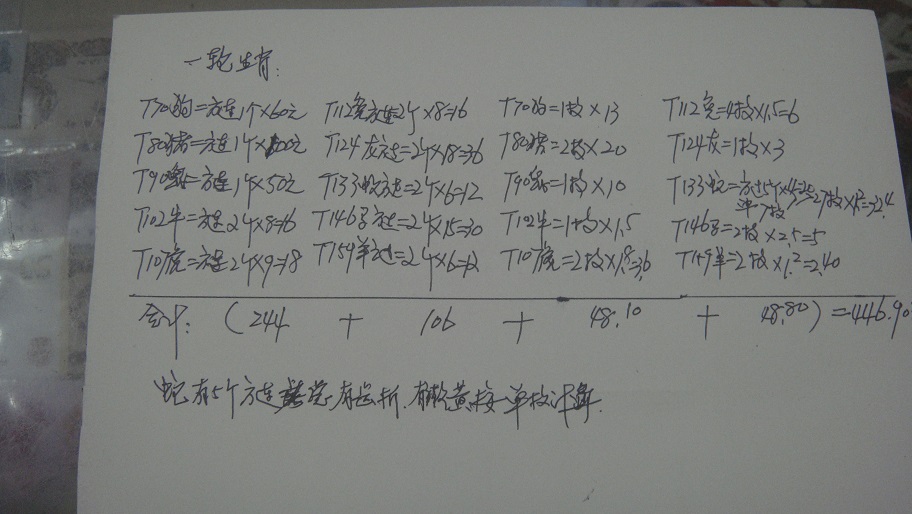 一轮生肖:
T70猴=方连1个×60元 T112兔方连=2个×8=16 T70猴=1枚×13 T112兔=4枚×1.5=6
T80猪=方连1个×100元 T124龙方连=2个×18=36 T80猪=2枚×20 T124龙=1枚×3
T90鼠=方连1个×50元 T133蛇方连=2个×6=12 T90鼠=1枚×10 T133蛇=方连5个×4=20 27枚×1.2=32.4
单7枚
T102牛=方连2个×8=16 T146马方连=2个×15=30 T102牛=1枚×1.5 T146马=2枚×2.5=5
T107虎=方连2个×9=18 T159羊方连=2个×6=12 T107虎=2枚×1.8=3.6 T159羊=2枚×1.2=2.40
合计: (244 + 106 + 48.10 + 48.80) =446.90
蛇有5个方连 有齿折.有软黄按单枚计算.